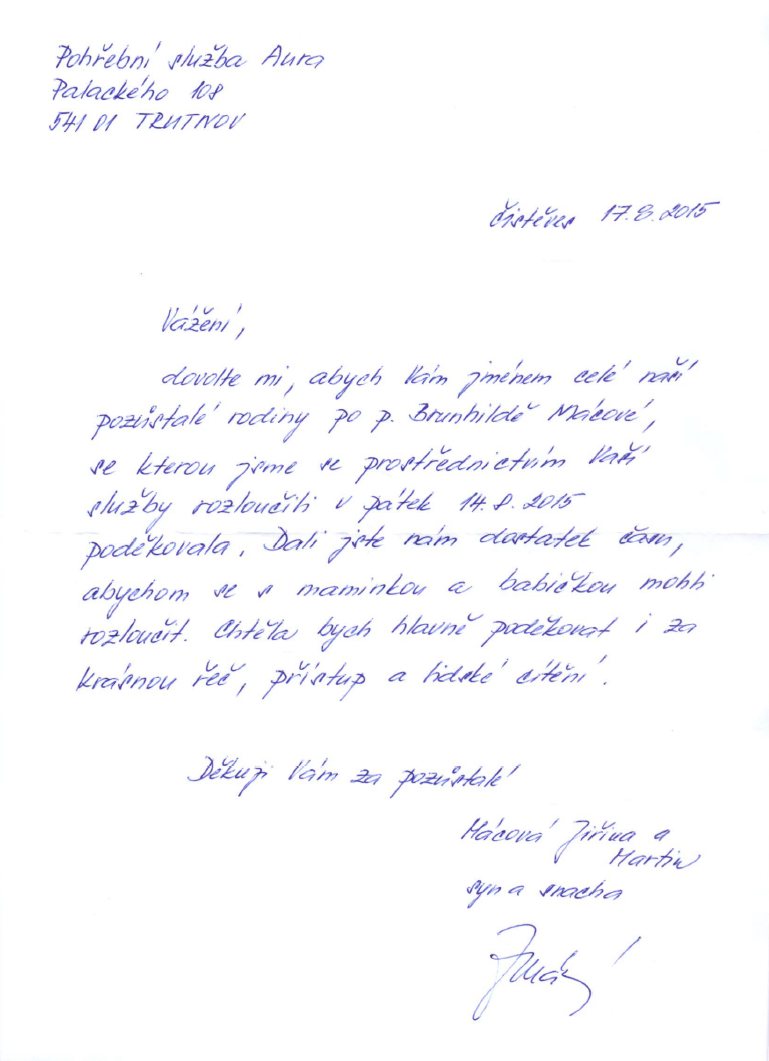 Pohřební služba Aura
Palackého 108
541 01 TRUTNOV
Čistěves 17.8.2015
Vážení,
dovolte mi, abych Vám jménem celé naší
pozůstalé rodiny po p. Brunhildě Mácové,
se kterou jsme se prostřednictvím Vaší
služby rozloučili v pátek 14.8.2015
poděkovala. Dali jste nám dostatek času,
abychom se s maminkou a babičkou mohli
rozloučit. Chtěla bych hlavně poděkovat i za
krásnou řeč, přístup a lidské cítění.
Děkuji Vám za pozůstalé
Mácová Jiřina a
Martin
syn a snacha